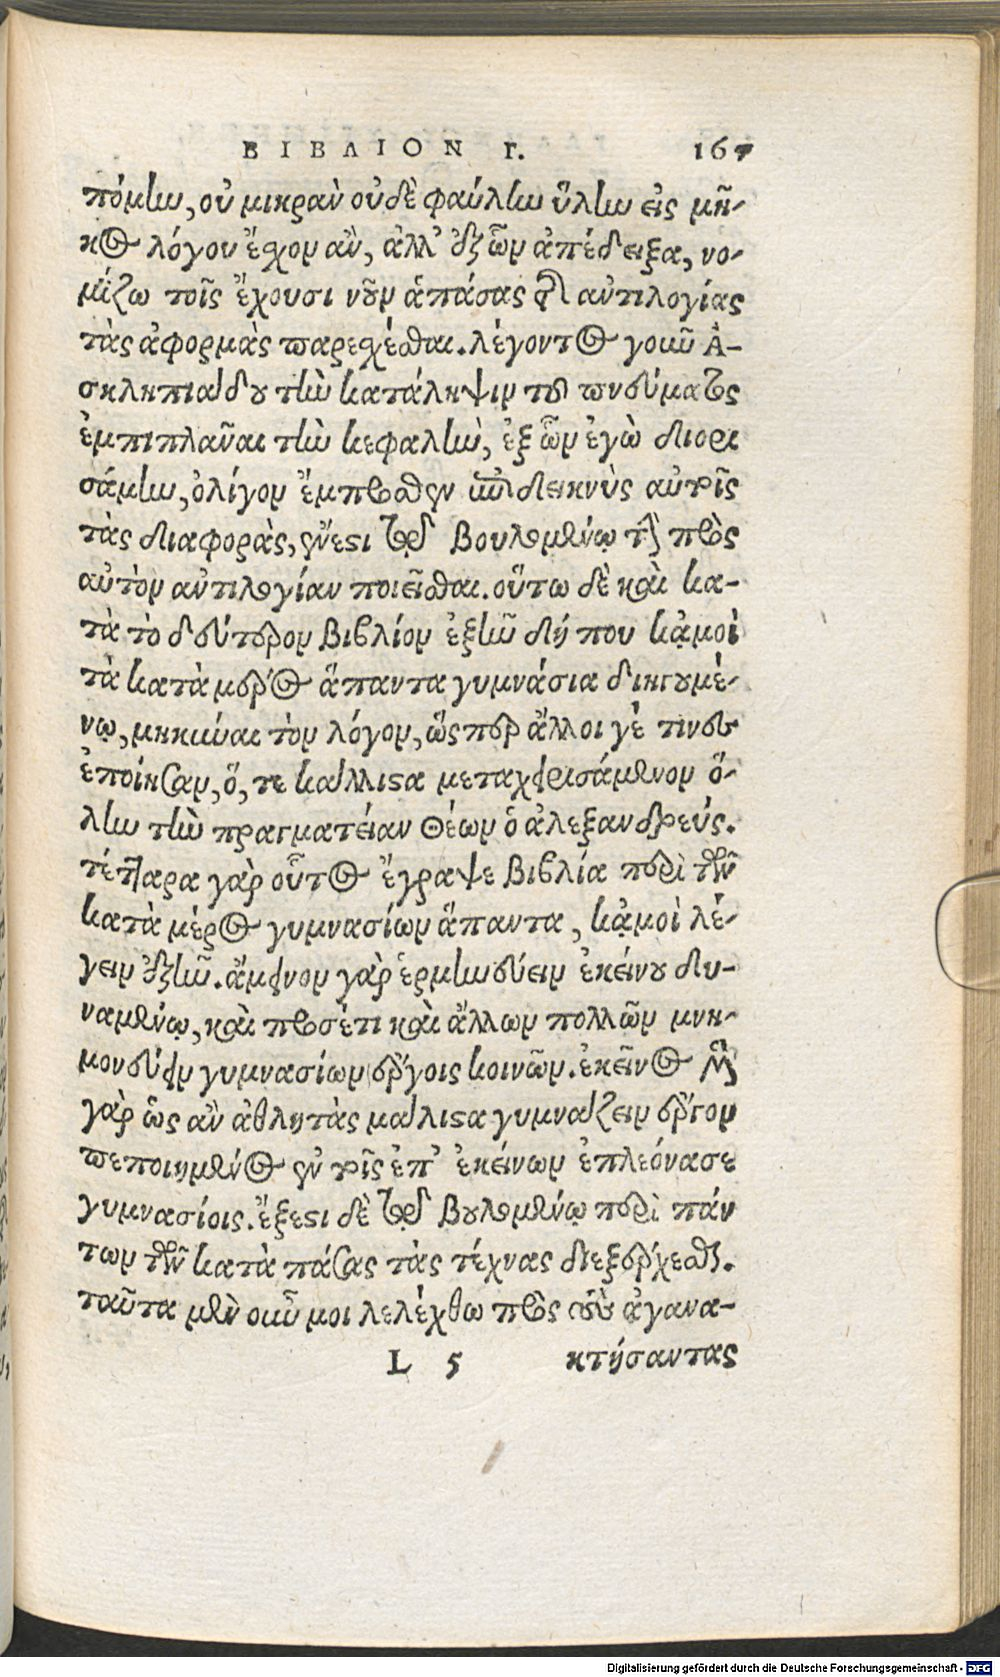 ΒΙΒΛΙΟΝ Γ. 167
πόμην, οὐ μικρὰν οὐδὲ φαύλην ὕλην εἰς μῆ-
κος λόγου ἔχον ἂν, ἀλλ' ἐξ ὧν ἀπέδειξα, νο-
μίζω τοῖς ἔχουσι νοῦν ἁπάσας τῆς ἀντιλογίας
τὰς ἀφορμὰς παρεχέσθαι. λέγοντος γοιοῦ Ἀ-
σκληπιάδου τὴν κατάληψιν τοῦ πνεύματος
ἐμπιπλᾶναι τὴν κεφαλὴν, ἐξ ὧν ἐγὼ διορι
σάμην, ὀλίγον ἔμπροσθεν ἐπιδεικνὺς αὐτοῖς
τὰς διαφορὰς, ἔνεστι τῷ βουλομένῳ τὴν πρὸς
αὐτὸν ἀντιλογίαν ποιεῖσθαι. οὕτω δὲ καὶ κα-
τὰ τὸ δεύτερον βιβλίον ἐξῆν δή που κᾀμοὶ
τὰ κατὰ μέρος ἅπαντα γυμνάσια διηγουμέ-
νῳ, μηκῦναι τὸν λόγον, ὥσπερ ἄλλοι γέ τινες
ἐποίησαν, ὅ, τε κάλλιστα μεταχειρισάμενον ὅ-
λην τὴν πραγματείαν Θέων ὁ ἀλεξανδρεύς.
τέτταρα γὰρ οὗτος ἔγραψε βιβλία περὶ τῶν
κατὰ μέρος γυμνασίων ἅπαντα, κᾀμοὶ λέ-
γειν ἐξῆν. ἄμεινον γὰρ ἑρμηνεύειν ἐκείνου δυ-
ναμένῳ, καὶ προσέτι καὶ ἄλλων πολλῶν μνη-
μονεύειν γυμνασίων ἔργοις κοινῶν. ἐκεῖνος μὲν
γὰρ ὡς ἂν ἀθλητὰς μάλιστα γυμνάζειν ἔργον
πεποιημένος ἐν τοῖς ἐπ' ἐκείνων ἐπλεόνασε
γυμνασίοις. ἔξεστι δὲ τῷ βουλομένῳ περὶ πάν
των τῶν κατὰ πάσας τὰς τέχνας διεξέρχεσθαι.
ταῦτα μὲν οὖν μοι λελέχθω πρὸς τοὺς ἀγανα-
L 5 κτήσαντας
Digitalisierung gefördert durch die Deutsche Forschungsgemeinschaft - DFG